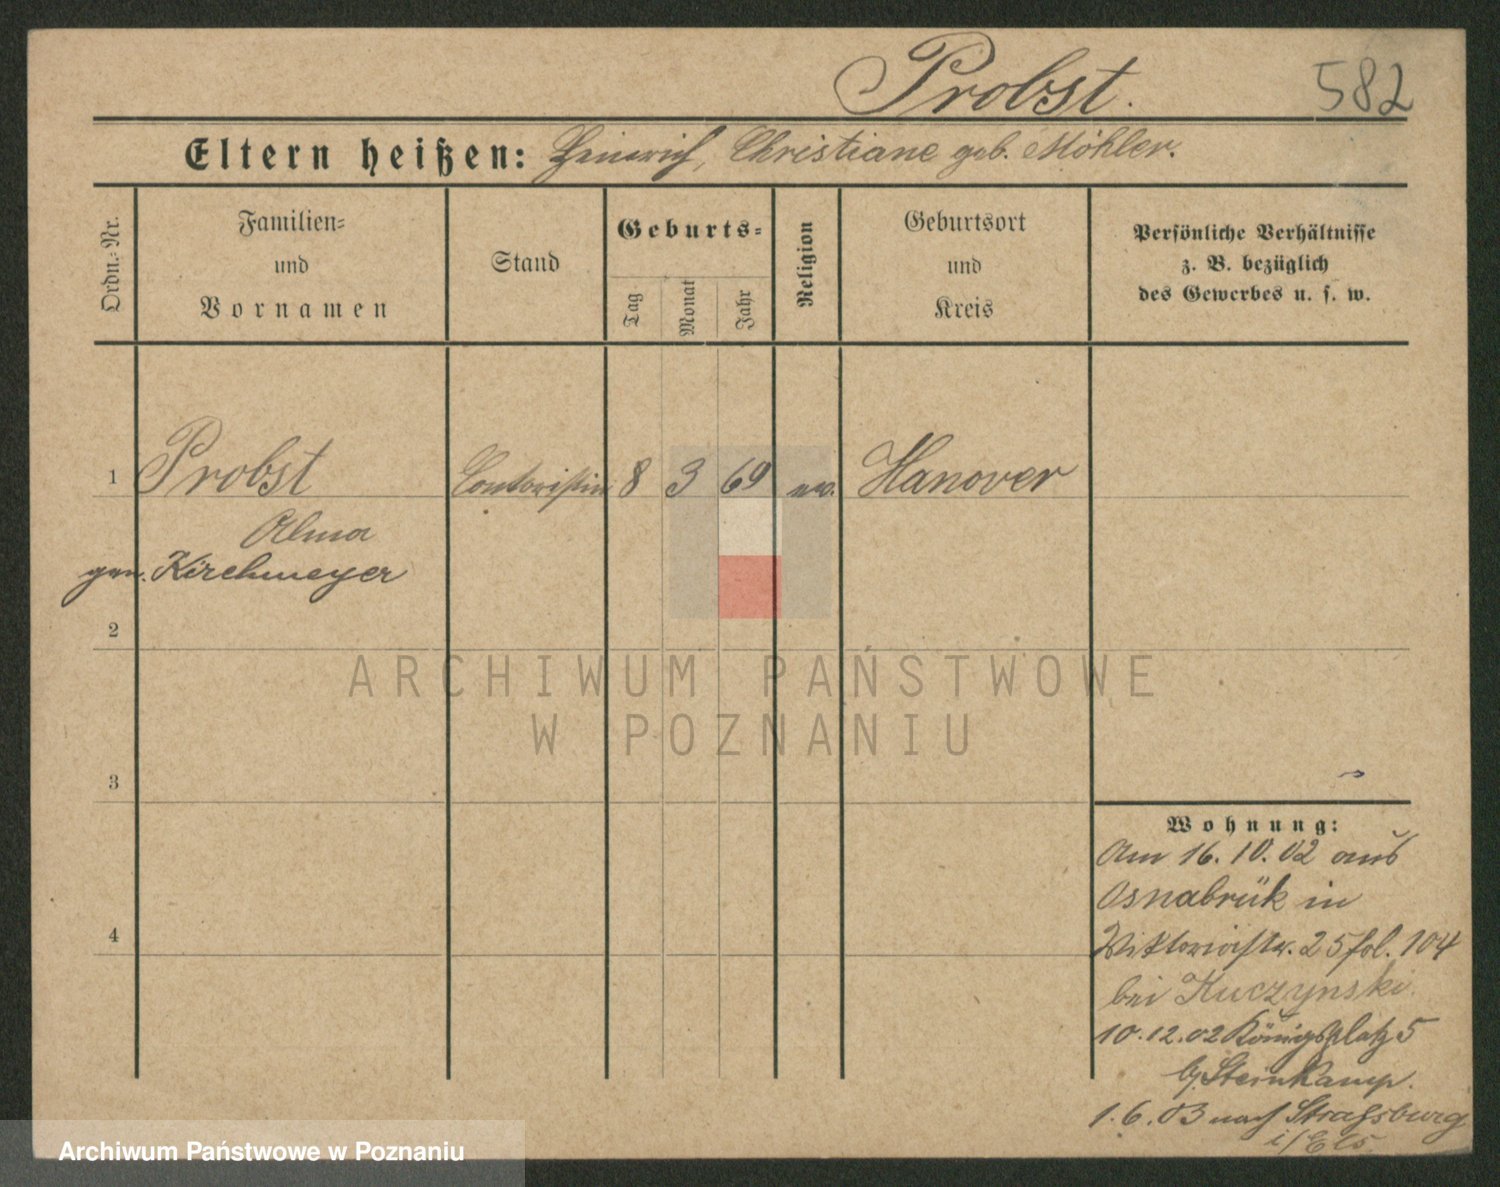 Probst.
582
Eltern heißen: Heinrich, Christiane geb. Möhler.
Ordn.-Nr.
Familien-
und
Vornamen
Stand
Geburts-
Tag
Monat
Jahr
Religion
Geburtsort
und
Kreis
Persönliche Verhältnisse
z. B. bezüglich
des Gewerbes u. s. w.
1 Probst Contoristin 8 3 69 ev. Hanover
Alma
gen. Kirchmeyer
2
3
4
ARCHIWUM PAŃSTWOWE
W POZNANIU
Wohnung:
Am 16.10.02 aus
Osnabrük in
Viktoriastr. 25 fol. 104
bei Kuczynski.
10.12.02 Königsplatz 5
b/ Steinkamp.
1.6.03 nach Strassburg
i/Els.
Archiwum Państwowe w Poznaniu